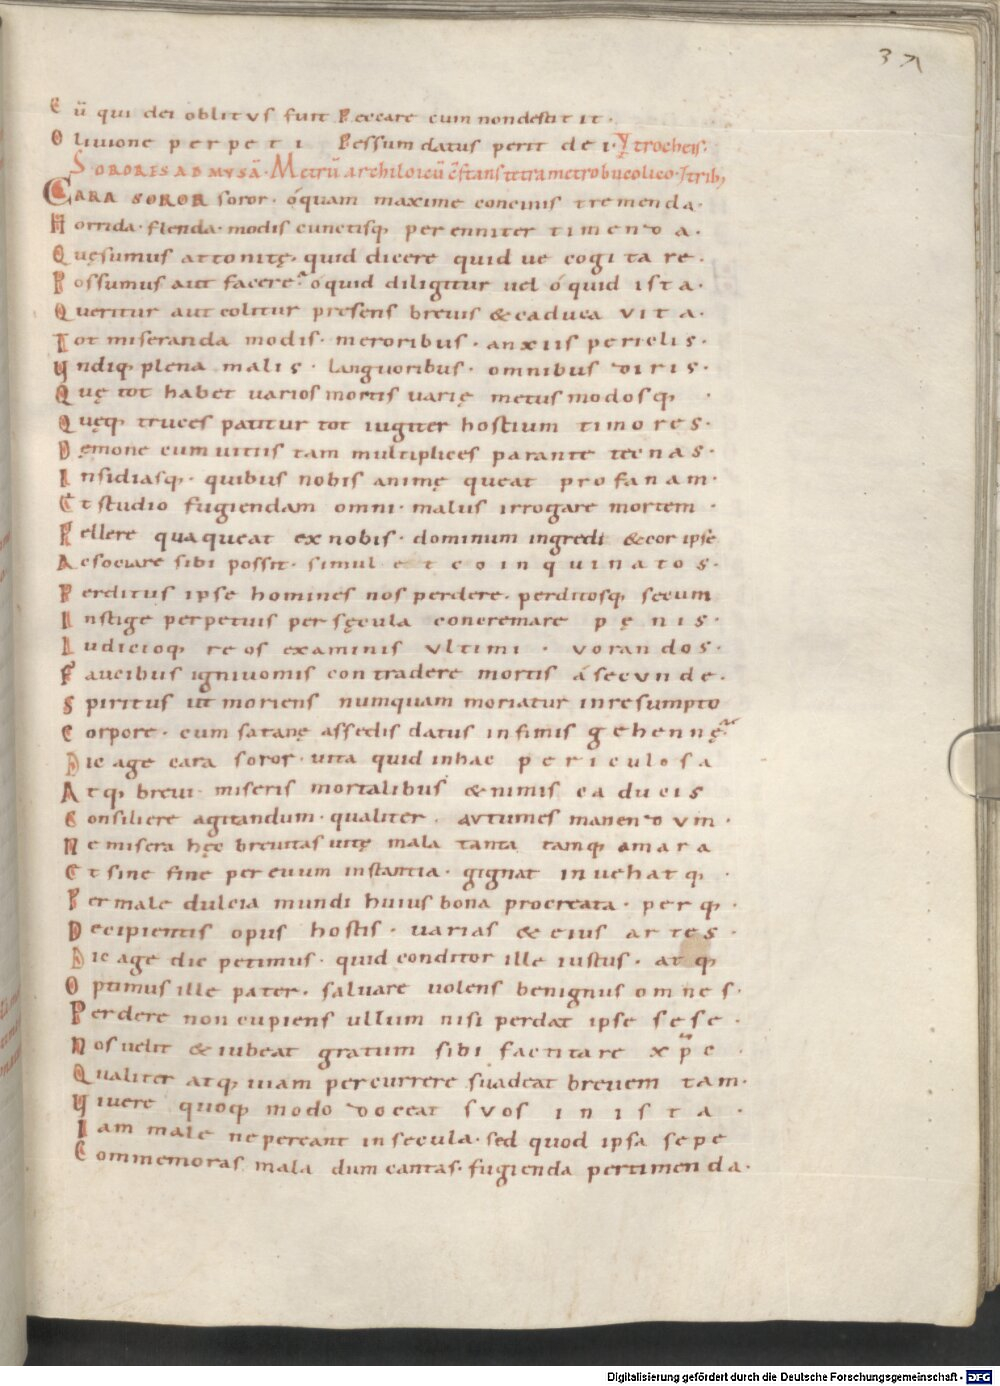 37
Cū qui dei oblitus fuit Peccare cum non destitit.
Oliuione perpeti Pessum datus perit dei. &trocheis.
SORORES AD MUSĀ. Metrū archiloicū c̄stans tetrametro bucolico. &trib;
CARA SOROR soror. óquam maxime concinis tremenda.
Horrida. flenda. modis cunctisq; perenniter timenda.
Quęsumus attonitę, quid dicere quid ue cogitare.
Possumus aut facere? óquid diligitur uel óquid ista.
Queritur aut colitur presens breuis & caduca vita.
Tot miseranda modis. meroribus. anxiis periclis.
Vndiq; plena malis. languoribus. omnibus diris.
Quę tot habet uarios mortis uarię metus modosq;
Quęq; truces patitur tot iugiter hostium timores.
Dęmone cum uitiis tam multiplices parante tecnas.
Insidiasq;. quibus nobis animę queat profanam.
Et studio fugiendam omni. malus irrogare mortem.
Pellere qua queat ex nobis. dominum ingredi & cor ipse
Ac sociare sibi possit. simul et coinquinatos.
Perditus ipse homines nos perdere. perditosq; secum
Instige perpetuis per sęcula concremare pęnis.
Iudicioq; reos examinis ultimi. vorandos.
Faucibus igniuomis contradere mortis á secunde.
Spiritus ut moriens numquam moriatur inresumpto
Corpore. cum satanę assedis datus infimis gehennę?
Dic age cara soror. uita quid in hac periculosa
Atq; breui. miseris mortalibus & nimis caducis
Consiliere agitandum. qualiter. autumes manendum.
Ne misera hęc breuitas uitę mala tanta tamq; amara
Et sine fine per euum instantia. gignat inuehatq;.
Per male dulcia mundi huius bona procreata. perq;.
Decipientis opus hostis. uarias & eius artes.
Dic age dic petimus. quid conditor ille iustus. atq;
Optimus ille pater. saluare uolens benignus omnes.
Perdere non cupiens ullum nisi perdat ipse sese.
Nos uelit & iubeat gratum sibi factitare xp̄e
Qualiter atq; uiam percurrere suadeat breuem tam.
Viuere quoq; modo doceat suos in ista.
Iam male ne pereant in secula. sed quod ipsa sepe
Commemoras mala dum cantas. fugienda pertimenda.
Digitalisierung gefördert durch die Deutsche Forschungsgemeinschaft - DFG